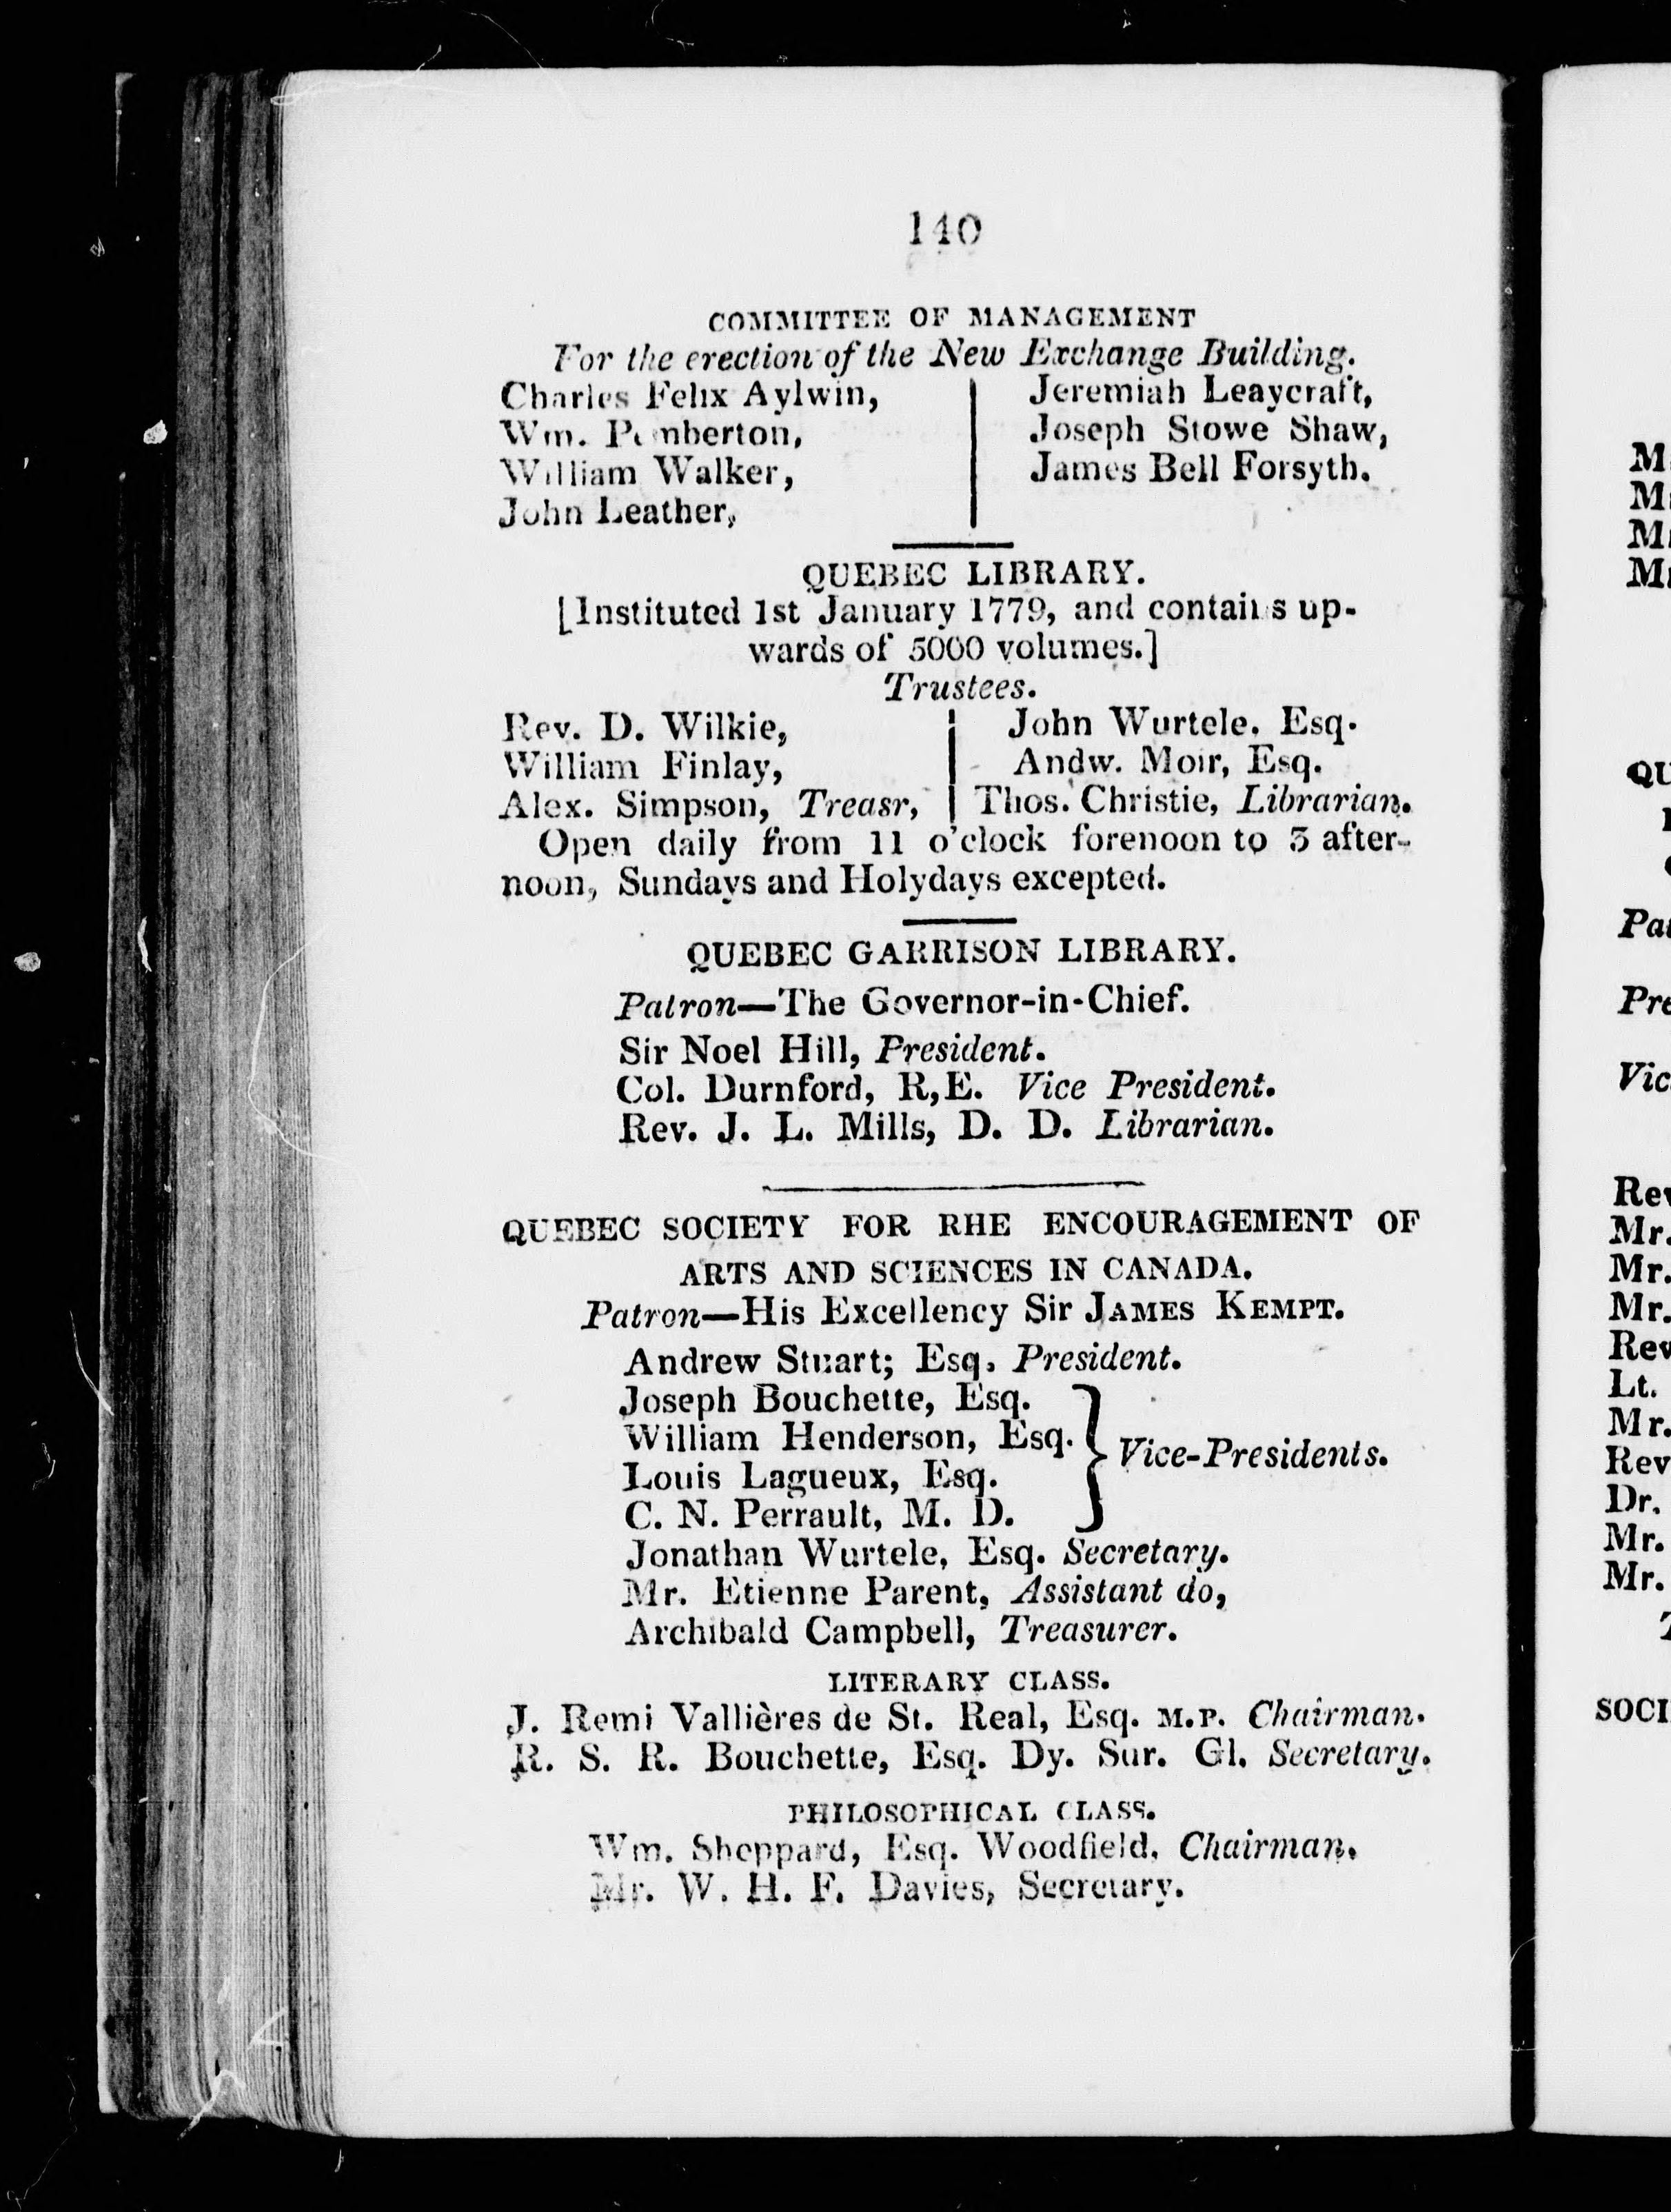 140
COMMITTEE OF MANAGEMENT
For the erection of the New Exchange Building.
Charles Felix Aylwin,
Wm. Pemberton,
William Walker,
John Leather,
Jeremiah Leaycraft,
Joseph Stowe Shaw,
James Bell Forsyth.
QUEBEC LIBRARY.
[Instituted 1st January 1779, and contains up-
wards of 5000 volumes.]
Trustees.
Rev. D. Wilkie,
William Finlay,
Alex. Simpson, Treasr,
John Wurtele, Esq.
Andw. Moir, Esq.
Thos. Christie, Librarian.
Open daily from 11 o'clock forenoon to 3 after-
noon, Sundays and Holydays excepted.
QUEBEC GARRISON LIBRARY.
Patron—The Governor-in-Chief.
Sir Noel Hill, President.
Col. Durnford, R,E. Vice President.
Rev. J. L. Mills, D. D. Librarian.
QUEBEC SOCIETY FOR RHE ENCOURAGEMENT OF
ARTS AND SCIENCES IN CANADA.
Patron—His Excellency Sir JAMES KEMPT.
Andrew Stuart; Esq, President.
Joseph Bouchette, Esq.
William Henderson, Esq.
Louis Lagueux, Esq.
C. N. Perrault, M. D.
Vice-Presidents.
Jonathan Wurtele, Esq. Secretary.
Mr. Etienne Parent, Assistant do,
Archibald Campbell, Treasurer.
LITERARY CLASS.
J. Remi Vallières de St. Real, Esq. M.P. Chairman.
R. S. R. Bouchette, Esq. Dy. Sur. Gl. Secretary.
PHILOSOPHICAL CLASS.
Wm. Sheppard, Esq. Woodfield, Chairman.
Mr. W. H. F. Davies, Secretary.
QU
Rev
Mr.
Mr.
Mr.
Rev
Lt.
Mr.
Rev
Dr.
Mr.
Mr.
SOCI